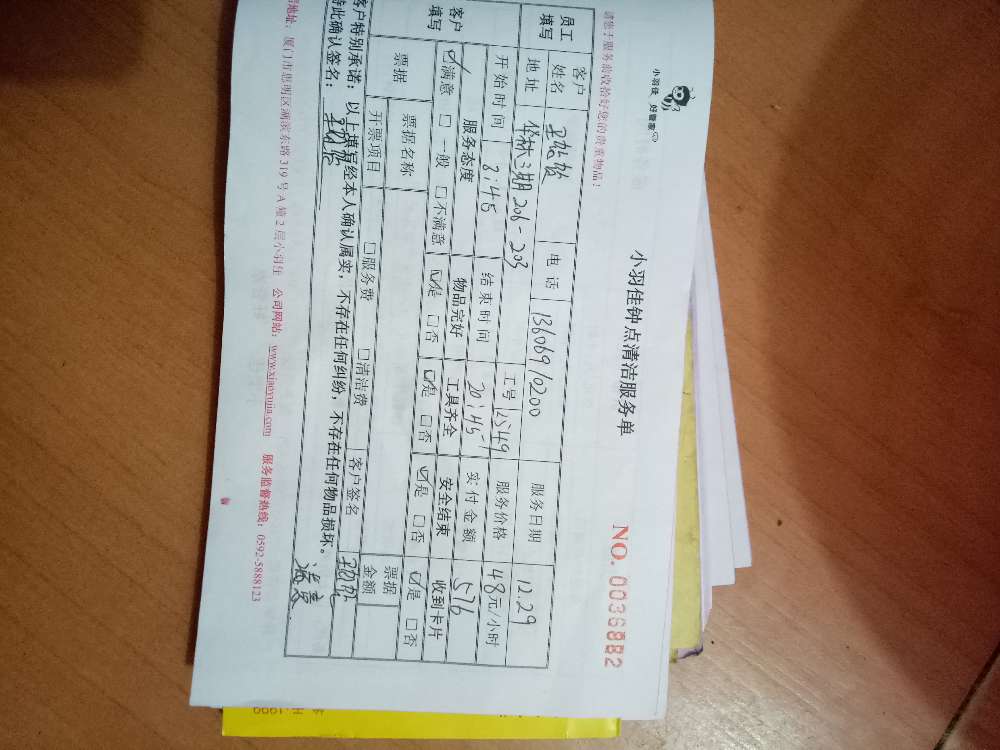 小羽佳 好管家
小羽佳钟点清洁服务单
NO. 0036882
请您于服务前收拾好您的贵重物品!
员工填写 客户姓名 电话 13606910200 服务日期 12.29
地址 华林三期206-203 工号 12549 服务价格 48元/小时
开始时间 8:45 结束时间 20:45 实付金额 576
客户填写 服务态度 物品完好 工具齐全 安全结束 收到卡片
☑满意 □一般 □不满意 ☑是 □否 ☑是 □否 ☑是 □否 ☑是 □否
票据 票据名称 票据金额
开票项目 □服务费 □清洁费 客户签名
客户特别承诺:以上填写经本人确认属实,不存在任何纠纷,不存在任何物品损坏。
特此确认签名:
地址:厦门市思明区湖滨东路319号A幢2层小羽佳 公司网站:www.xiaoyujia.com 服务监督热线:0592-5888123